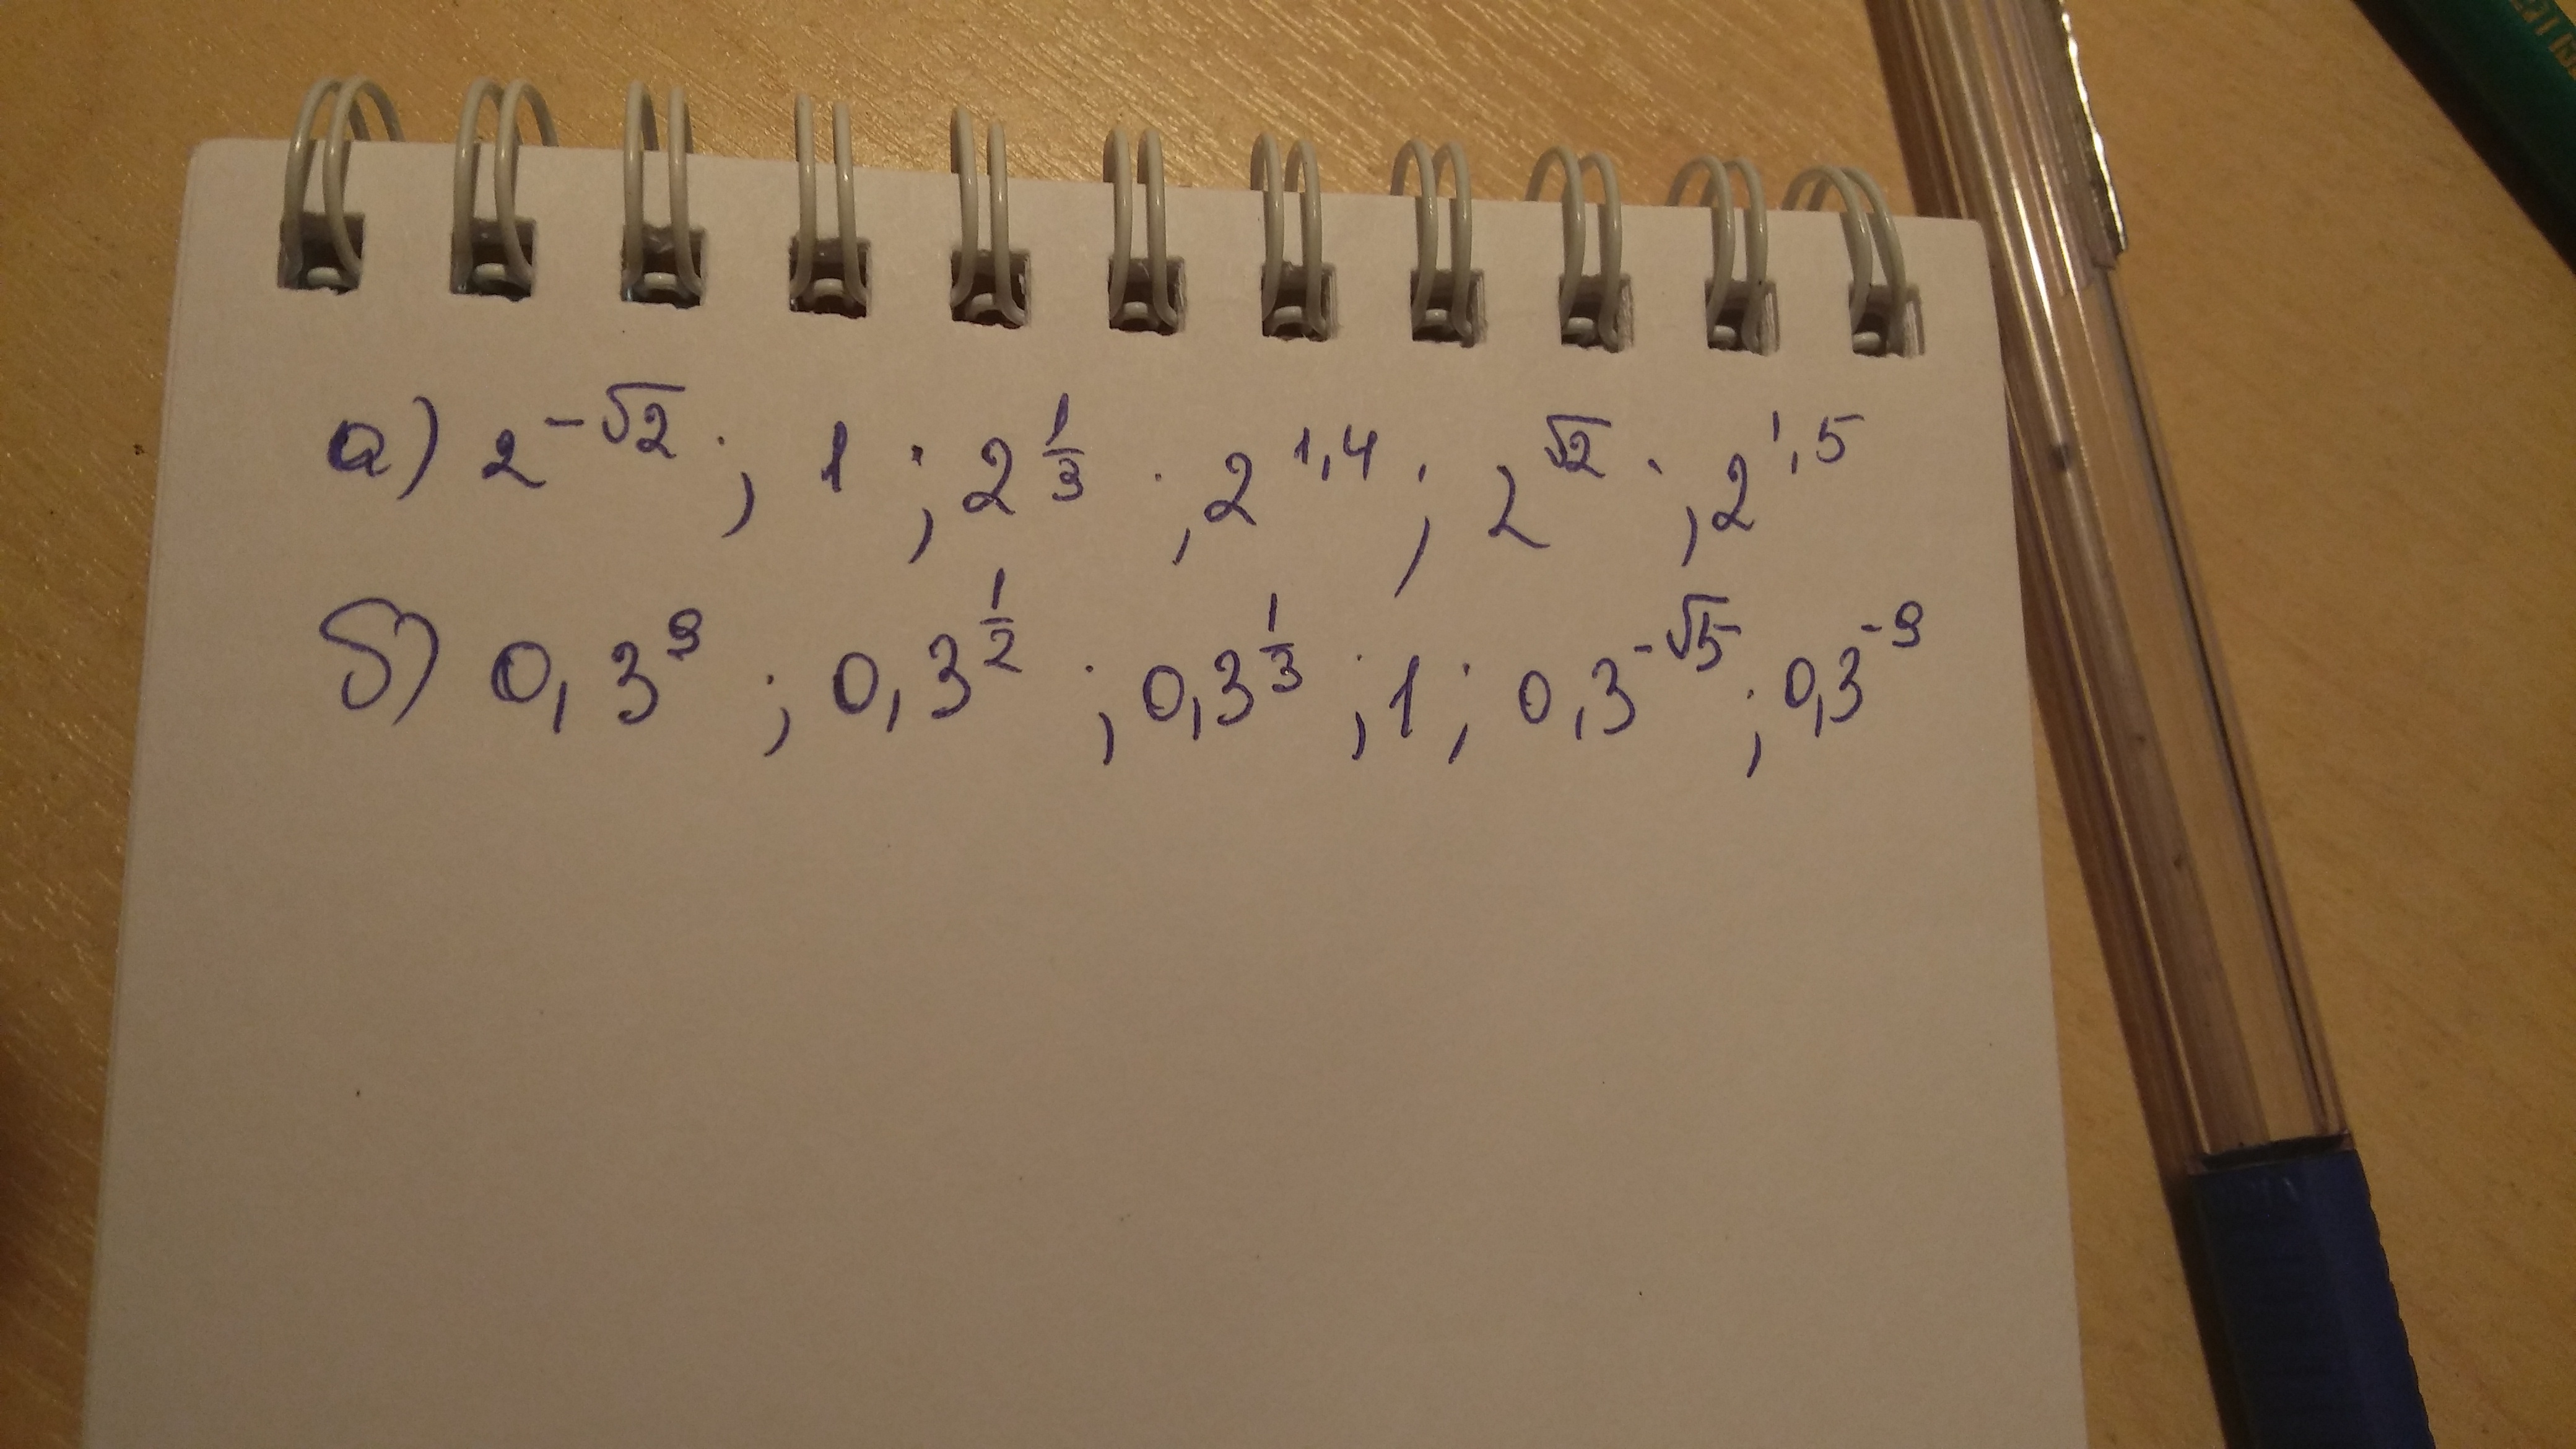 а) 2^{-√2}; 1; 2^{1/3}; 2^{1,4}; 2^{√2}; 2^{1,5}
б) 0,3^9; 0,3^{1/2}; 0,3^{1/3}; 1; 0,3^{-√5}; 0,3^{-9}